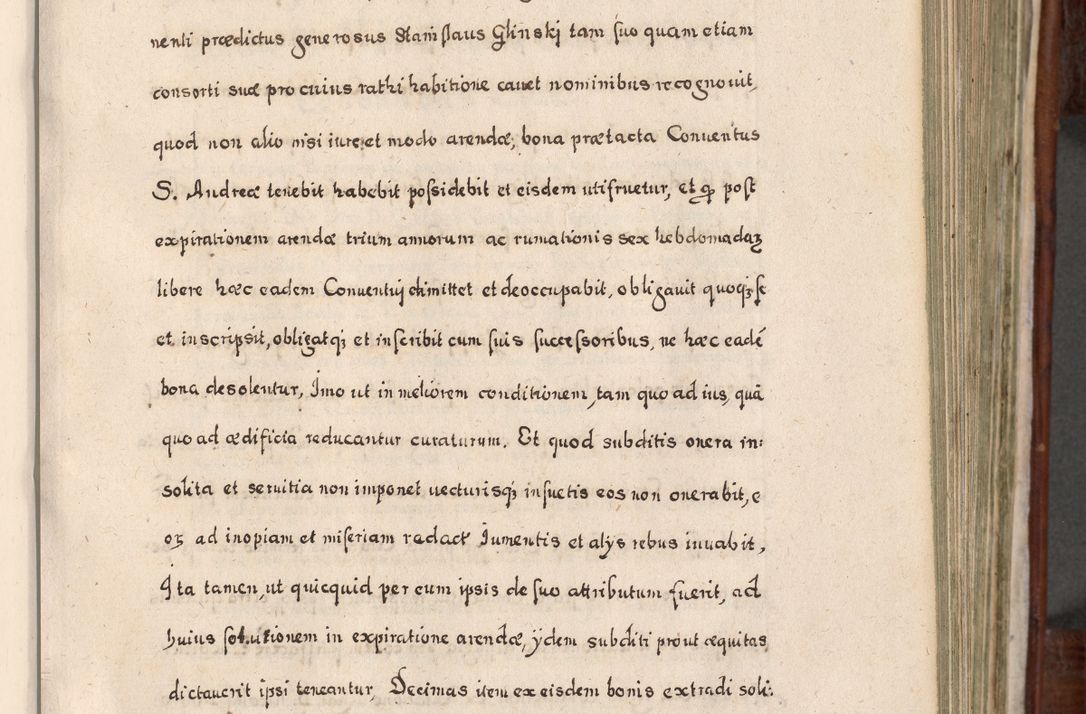 nenti prædictus generosus Stanislaus Glinski tam suo quam etiam
consorti suæ pro cuius rathi habitione cauet nominibus recognouit,
quod non alio nisi iure et modo arendæ, bona prætacta Conuentus
S. Andreæ tenebit habebit possidebit et eisdem utifruetur, et ꝙ post
expirationem arendæ trium annorum ac rumationis sex hebdomadaꝝ
libere hæc eadem Conuentuj dimittet et deoccupabit, obligauit quoqꝫ se
et inscripsit, obligatqꝫ et inscribit cum suis successoribus, ne hæc eadē
bona desolentur, Imo ut in meliorem conditionem, tam quo ad ius, quā
quo ad ædificia reducantur curaturum. Et quod subditis onera in:
solita et seruitia non imponet uecturisqꝫ insuetis eos non onerabit, e
oꝝ ad inopiam et miseriam redact Iumentis et alys rebus iuuabit,
Ita tamen, ut quicquid per eum ipsis de suo attributum fuerit, ad
huius solutionem in expiratione arendæ, ÿdem subditi prout æquitas
dictauerit ipsi teneantur, Decimas item ex eisdem bonis extradi soli: